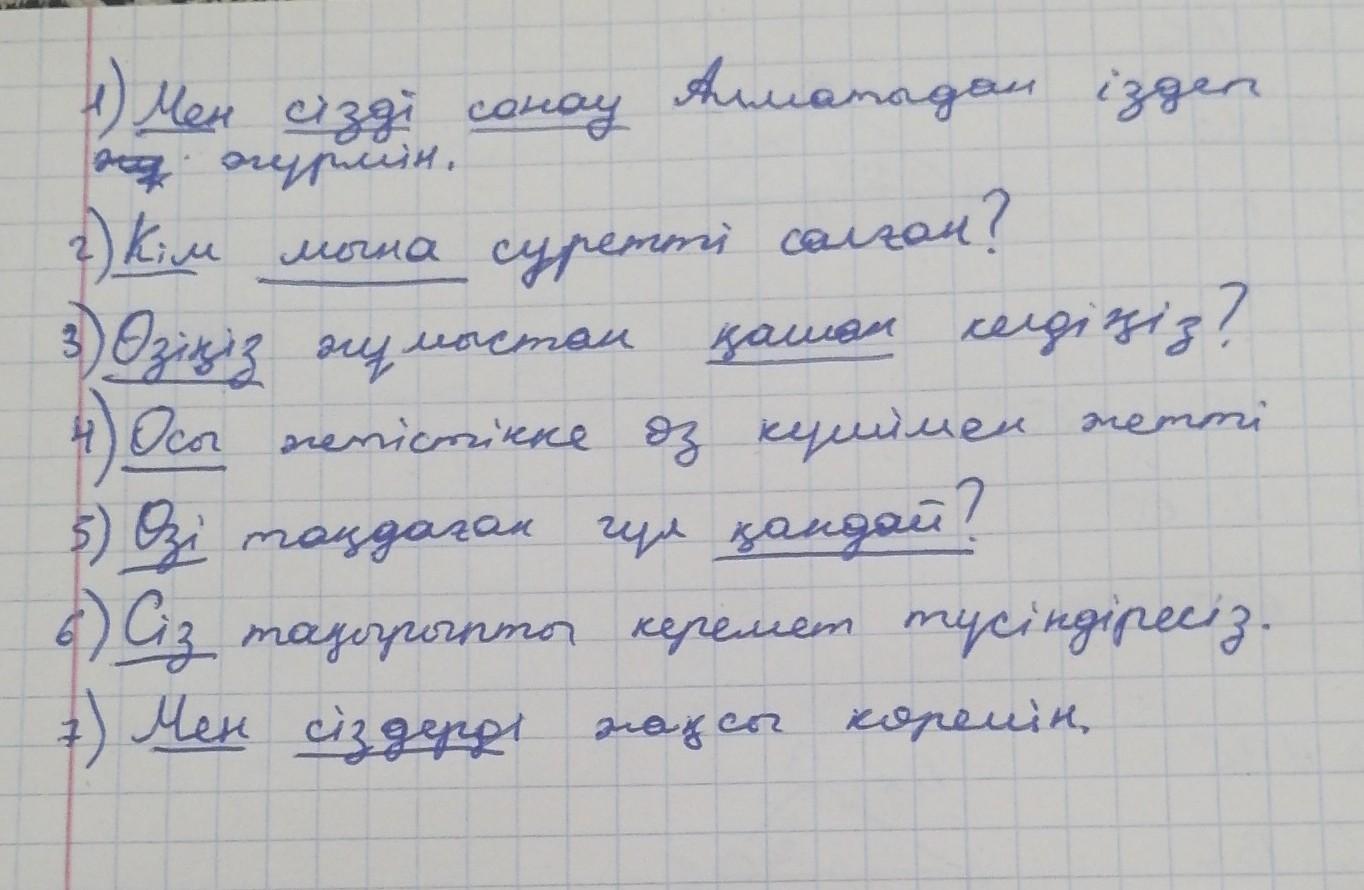 1) Мен сізді сонау Алматыдан іздеп
жүрмін.
2) Кім мына суретті салған?
3) Өзіңіз жұмыстан қашан келдіңіз?
4) Осы жетістікке өз күшімен жетті
5) Өзі таңдаған гүл қандай?
6) Сіз тақырыпты керемет түсіндіресіз.
7) Мен сіздерді жақсы көремін.